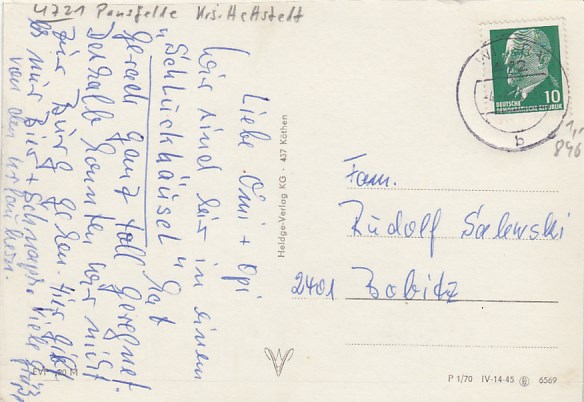 4721 Pansfelde Krs. Hettstedt
Liebe Omi + Opi
Wir sind hier in einem
"Schluckhäusel". Hat
gerade ganz toll geregnet.
Deshalb konnten wir nicht
zur Burg gehen. Hier gibt
es nur Bier + Schnaps. Viele Grüße
von den Urlaubern.
Heldge-Verlag KG · 437 Köthen
10
DEUTSCHE
DEMOKRATISCHE REPUBLIK
b
846
Fam.
Rudolf Salewski
2401 Bobitz
P 1/70 IV-14-45 6569